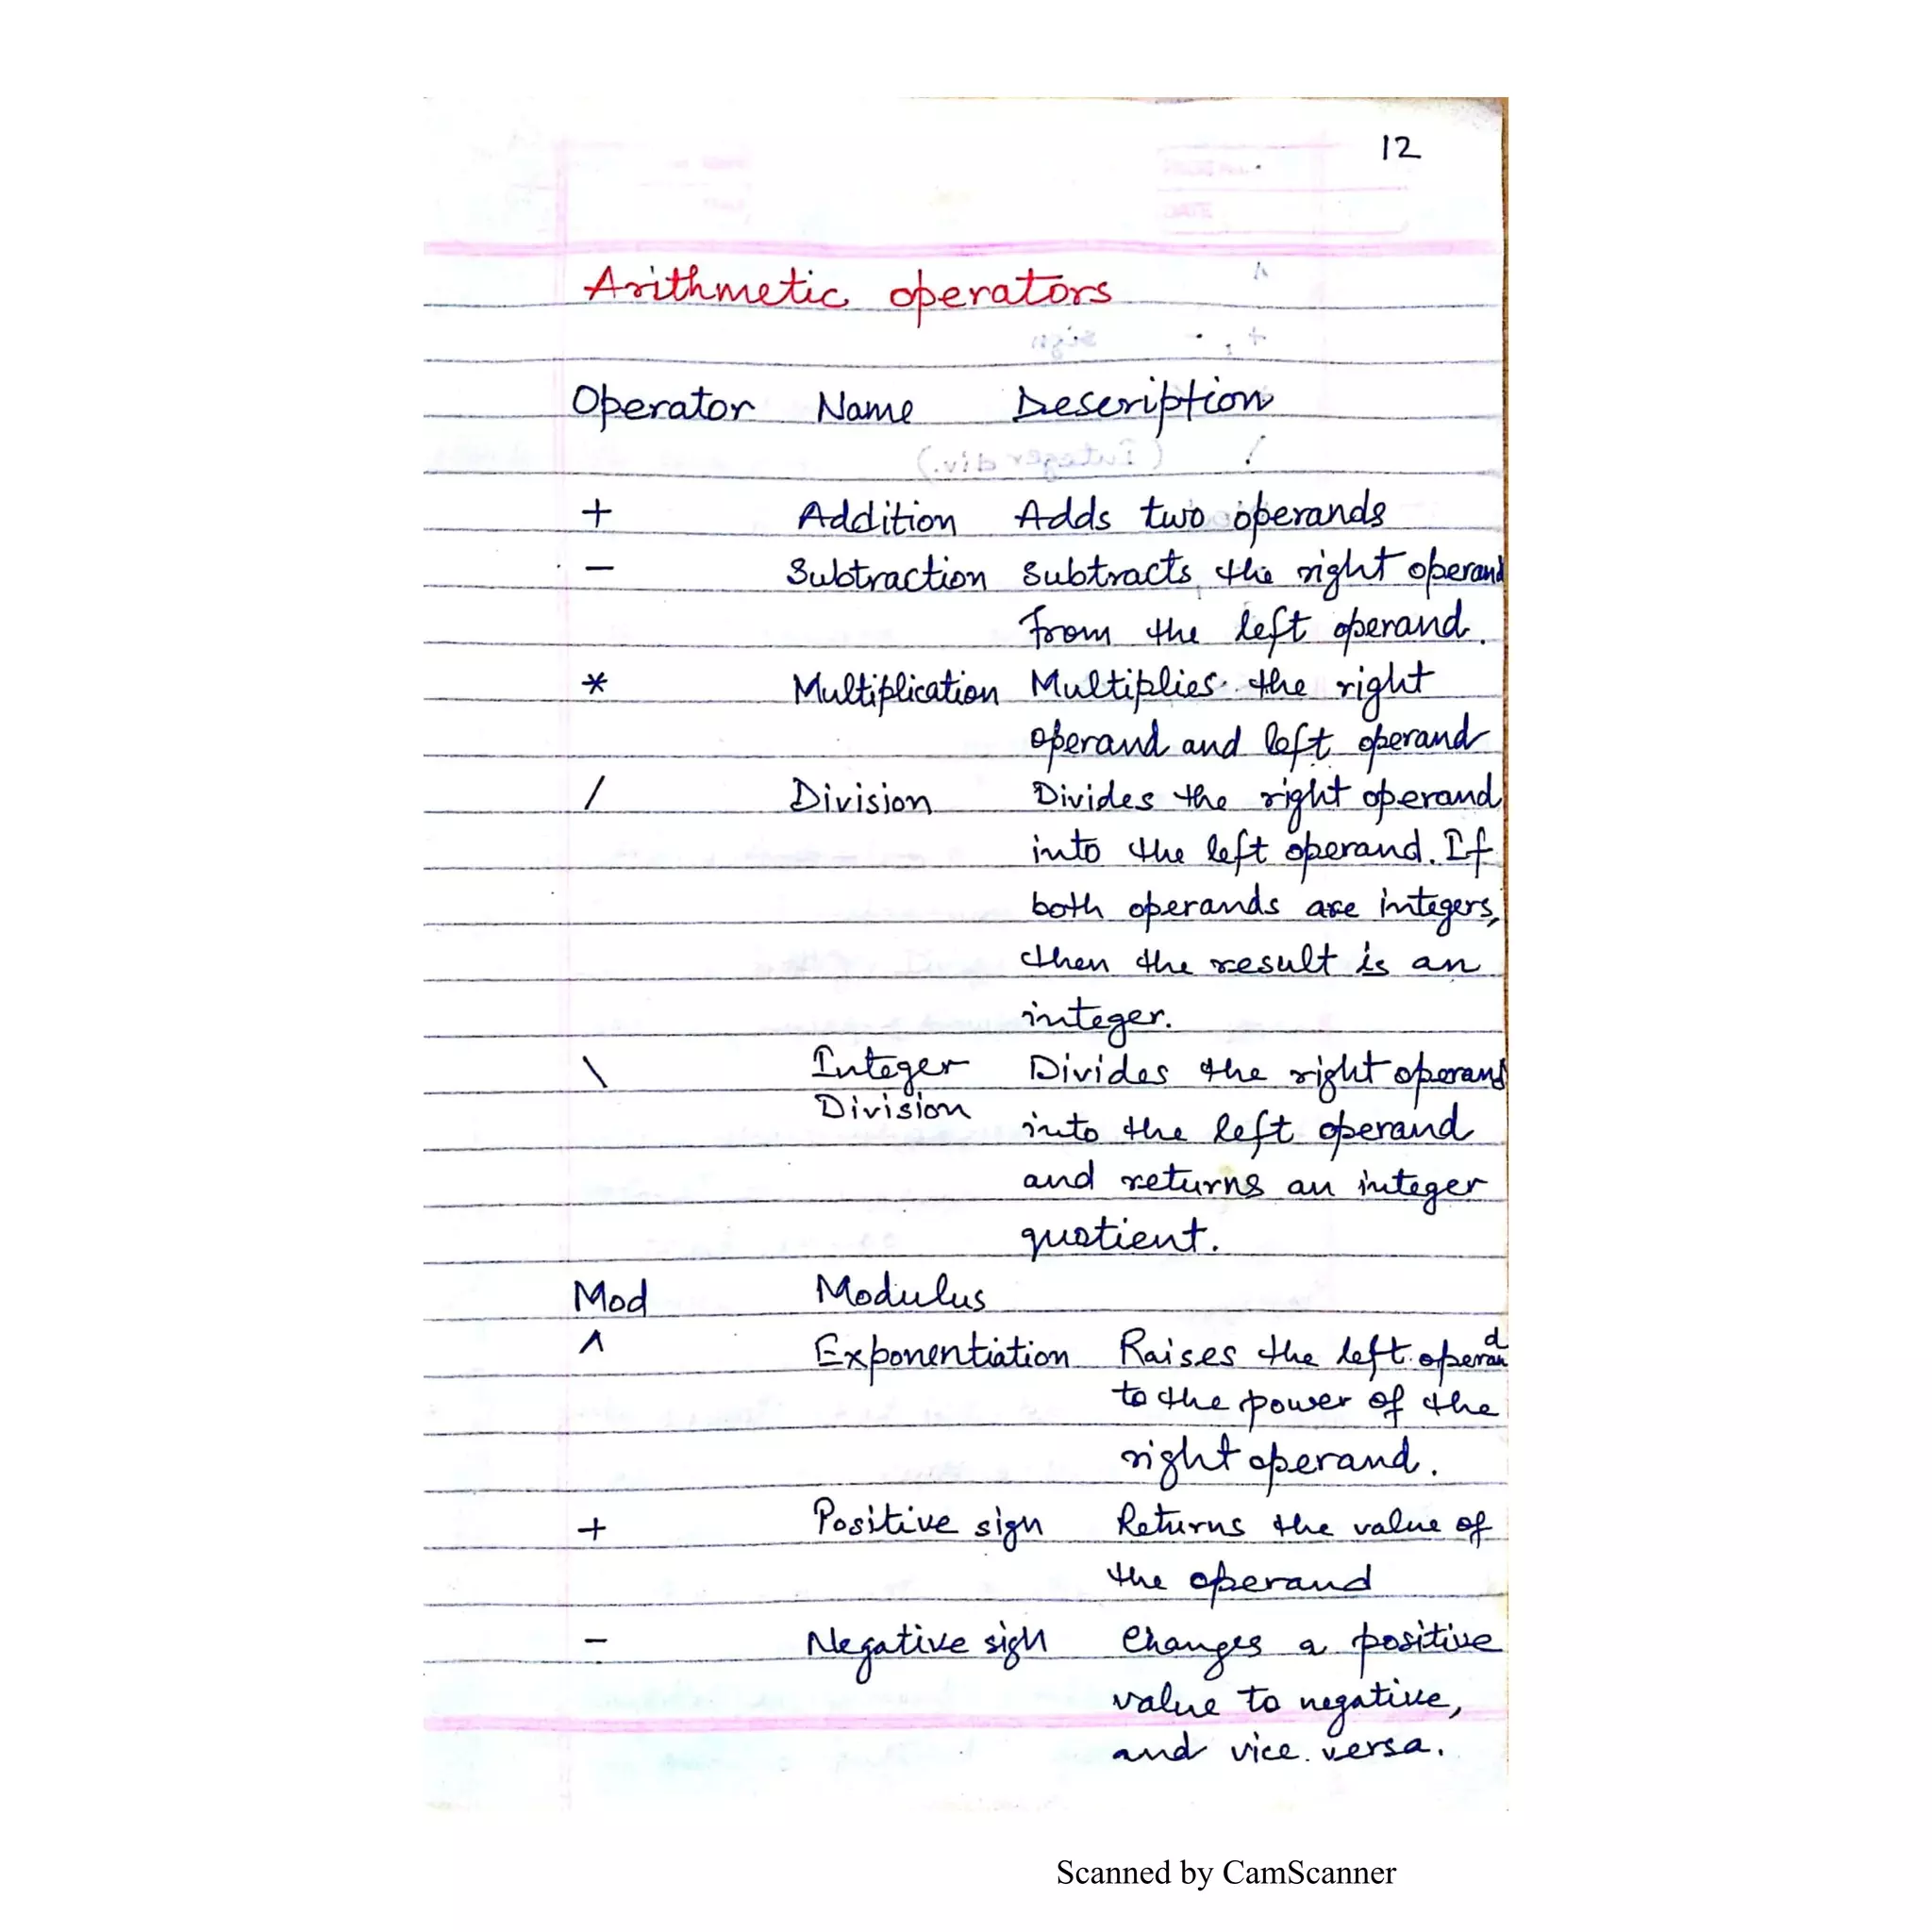 12
Arithmetic operators
Operator Name Description
+ Addition Adds two operands
- Subtraction Subtracts the right operand
from the left operand.
* Multiplication Multiplies the right
operand and left operand
/ Division Divides the right operand
into the left operand. If
both operands are integers,
then the result is an
integer.
\ Integer Divides the right operand
Division into the left operand
and returns an integer
quotient.
Mod Modulus
^ Exponentiation Raises the left operand
to the power of the
right operand.
+ Positive sign Returns the value of
the operand
- Negative sign Changes a positive
value to negative,
and vice versa.
Scanned by CamScanner